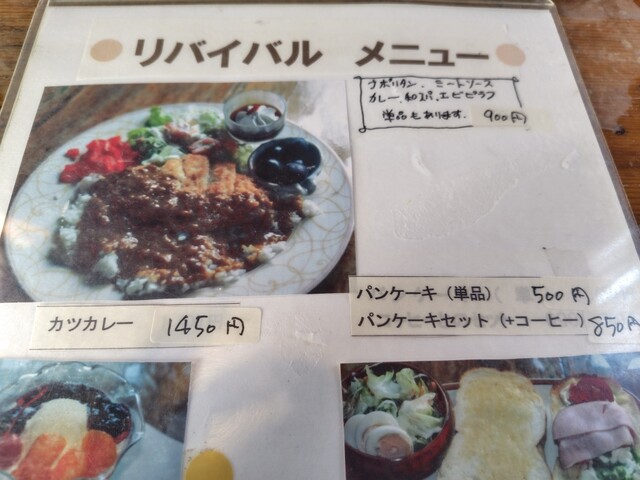 リバイバル メニュー
ナポリタン、ミートソース
カレー、和スパ、エビピラフ
単品もあります。 900円
パンケーキ (単品) 500円
カツカレー 1450円
パンケーキセット (+コーヒー) 850円